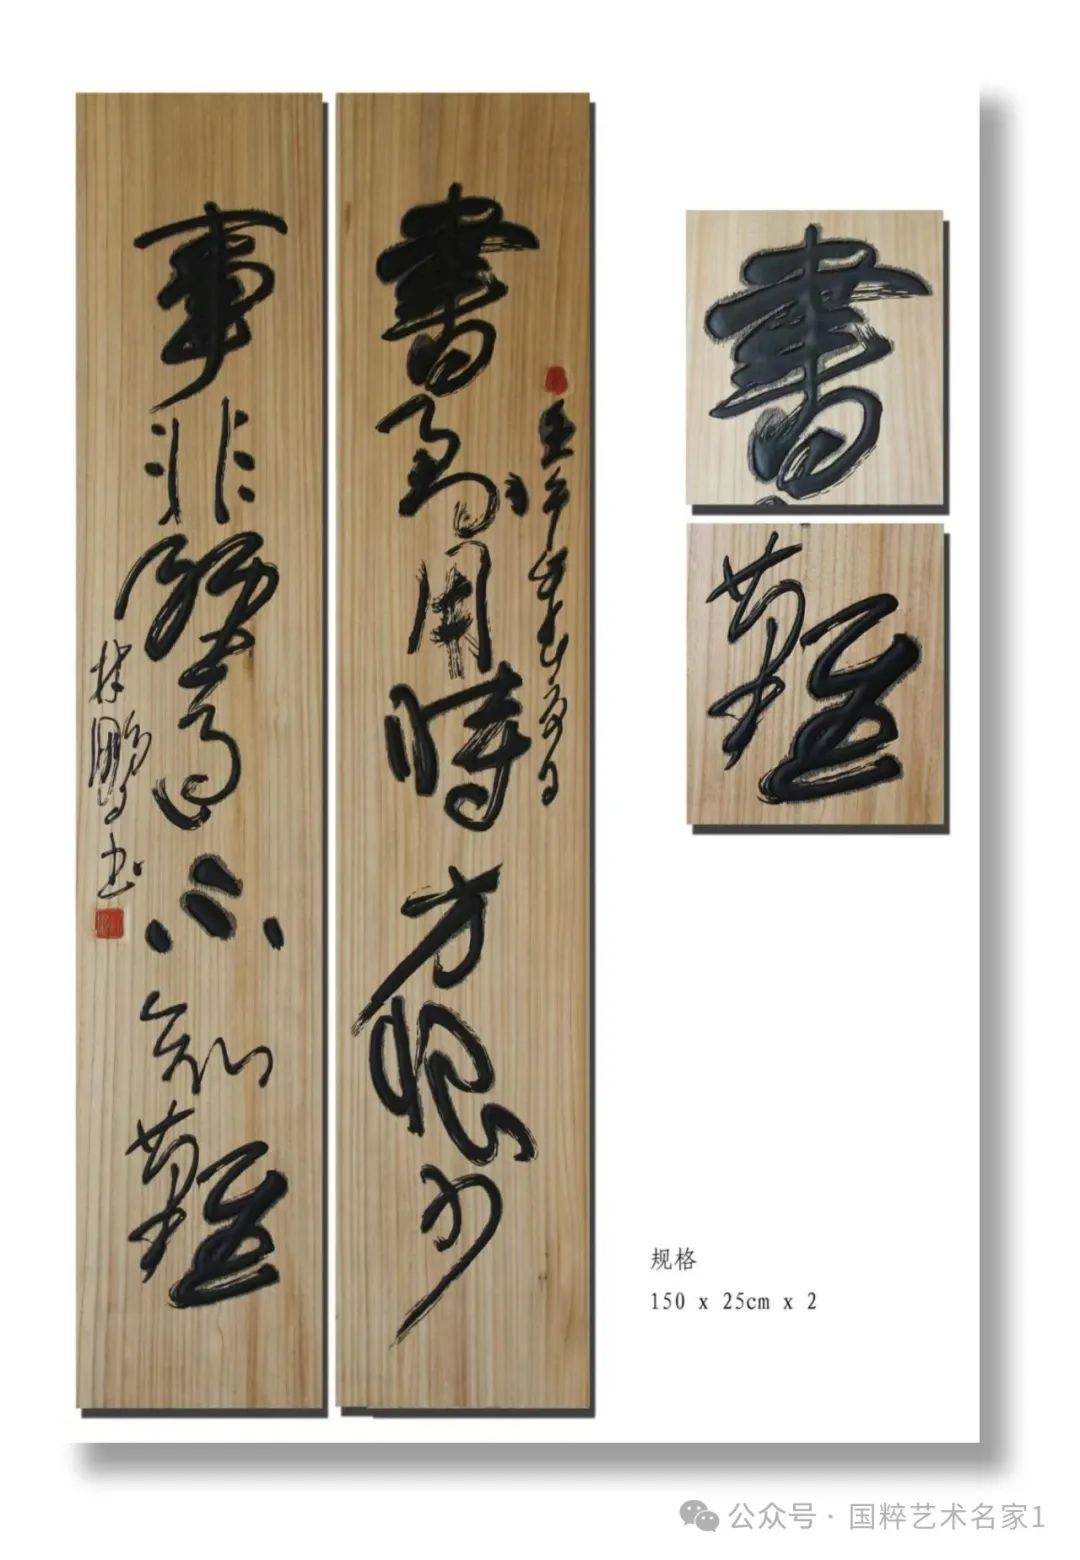 書到用時方恨少
事非經過不知難
林鵬書
書
難
规格
150 x 25cm x 2
公众号 · 国粹艺术名家1